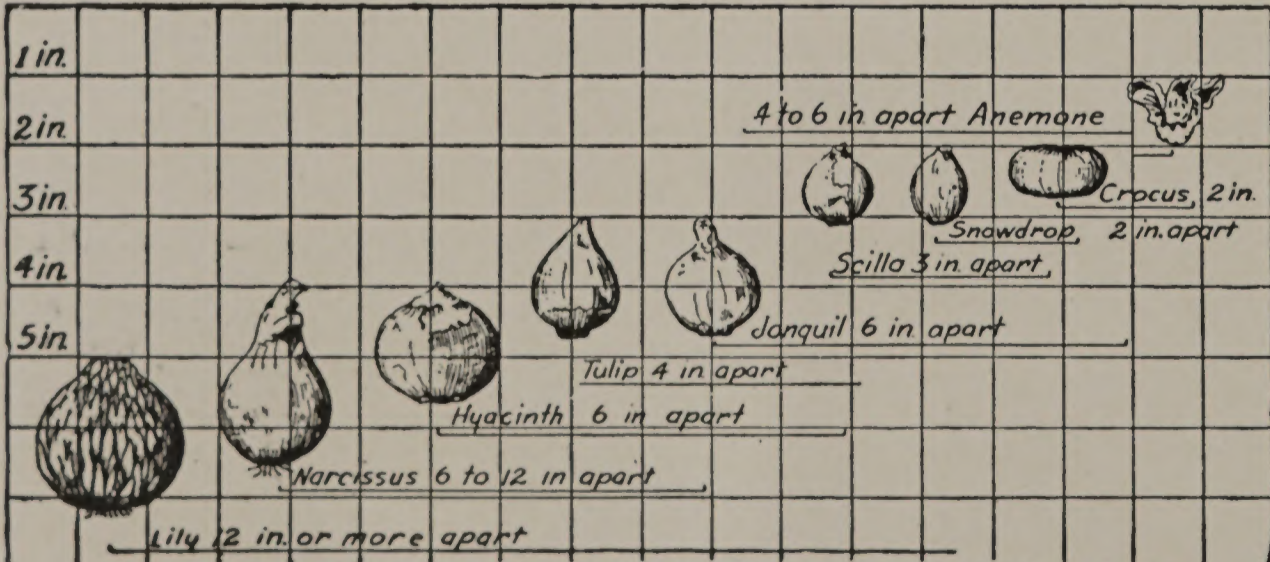 1 in.
2 in
3 in.
4 in
5 in
4 to 6 in apart Anemone
Crocus, 2 in.
Snowdrop, 2 in. apart
Scilla 3 in apart
Jonquil 6 in apart
Tulip 4 in apart
Hyacinth 6 in apart
Narcissus 6 to 12 in apart
Lily 12 in. or more apart